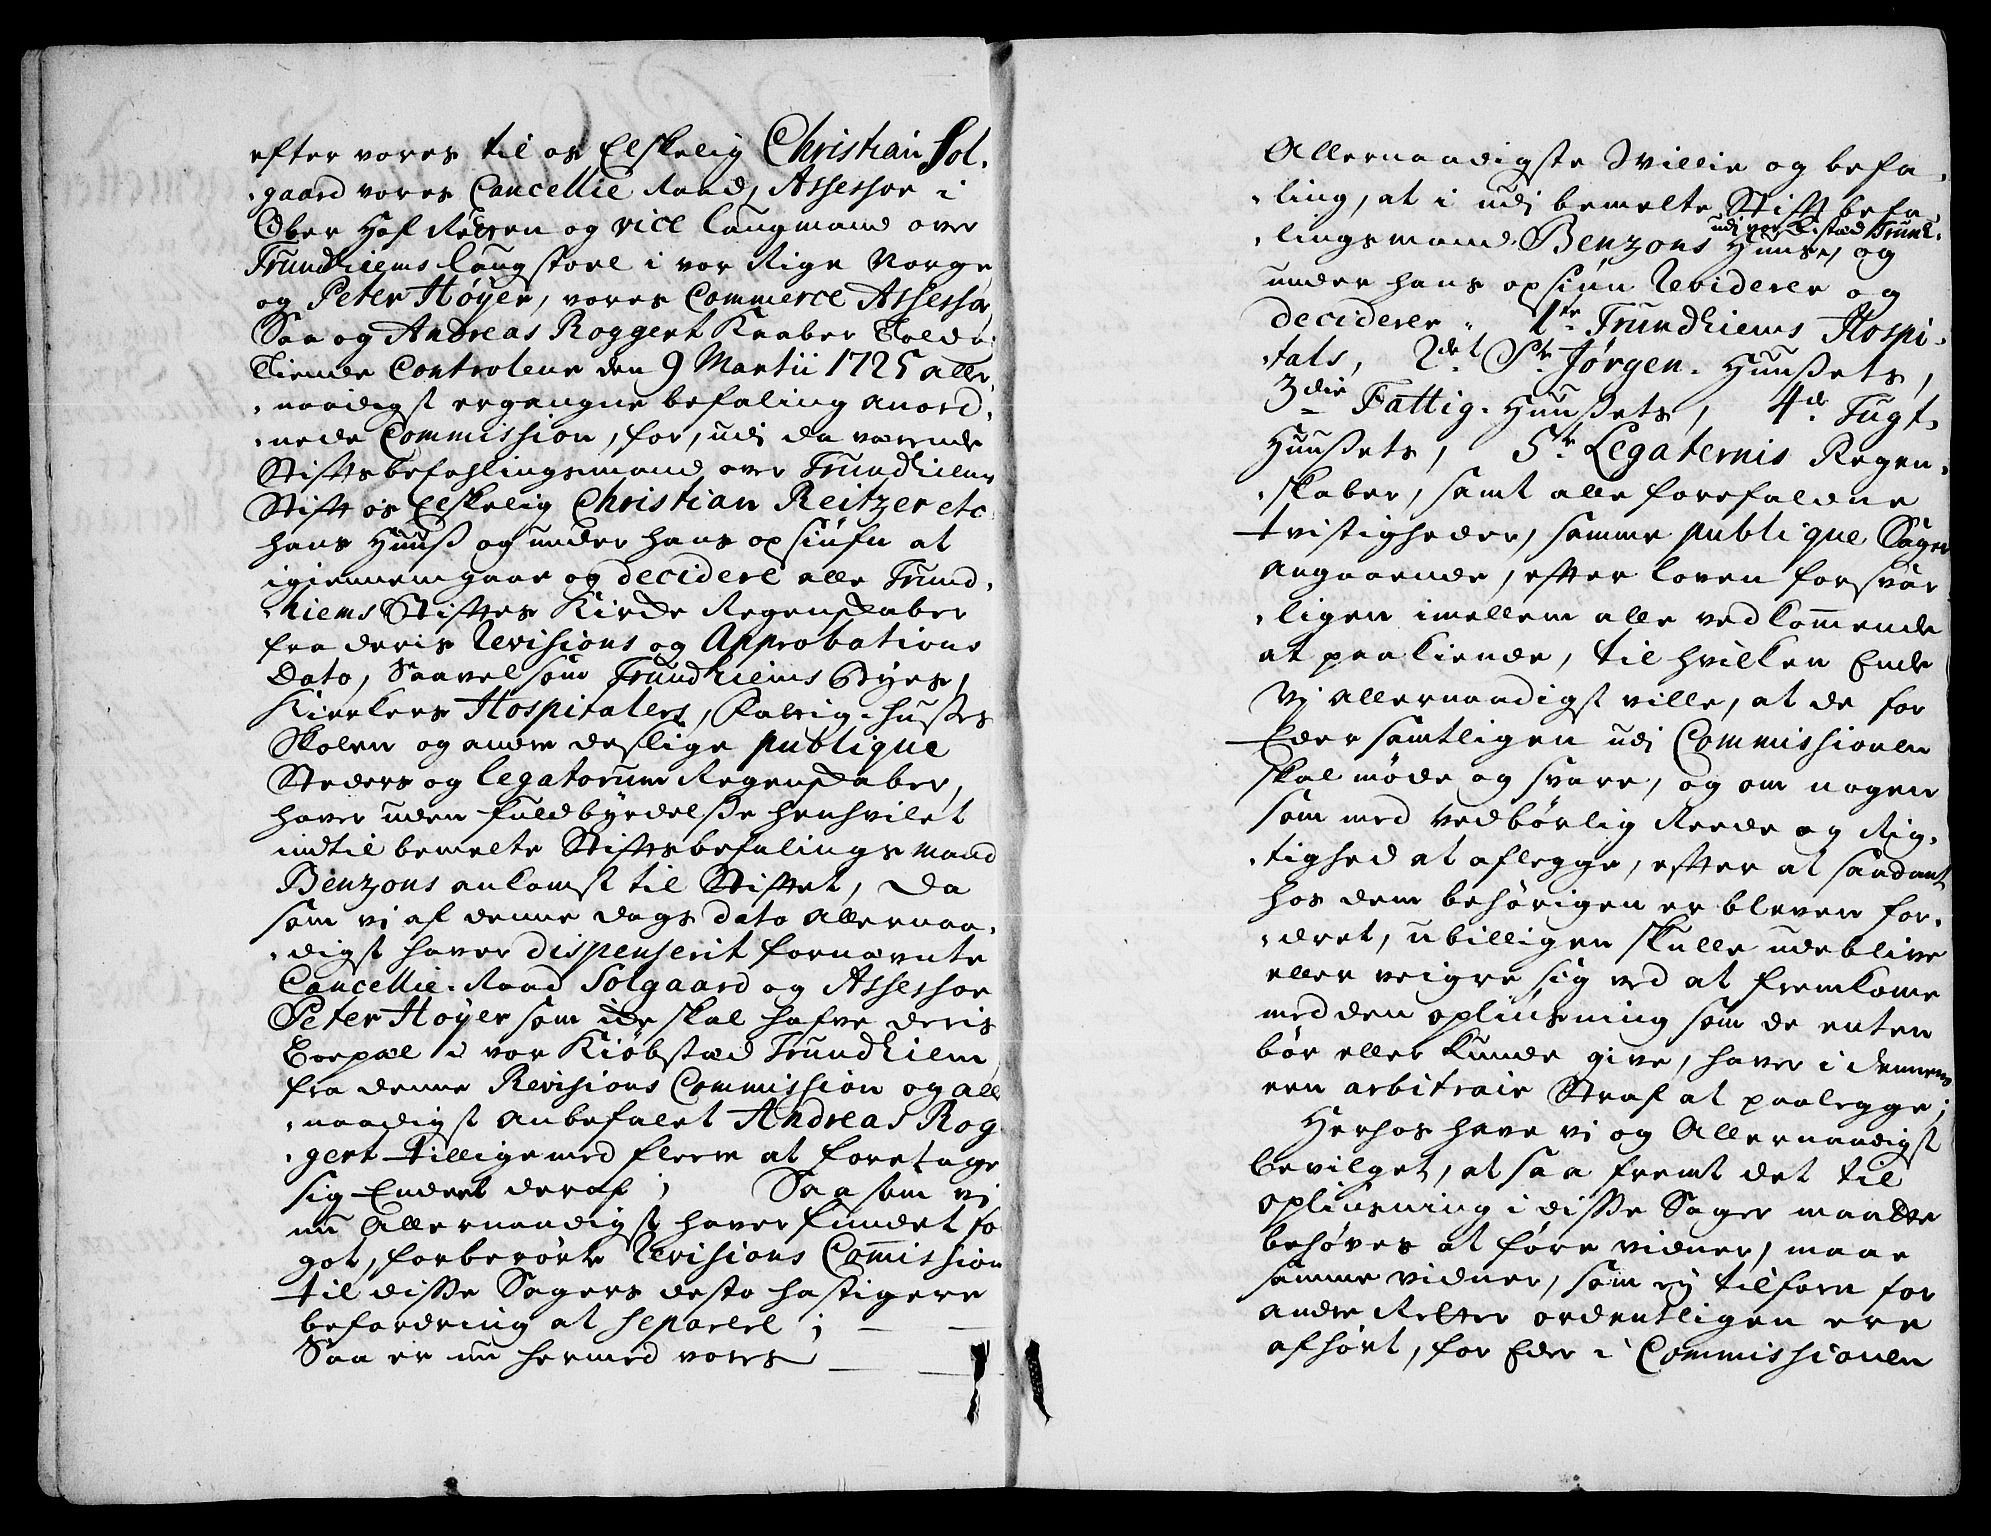 efter vores til os Elskelig Christian Sol-
-gaard vores Cancellie Raad, Assessor i
Ober Hof Retten og vice laugmand over
Trundhiems laugstoel i vor Rige Norge
og Peter Höÿer, vores Commerce Assessor,
Saa og Andreas Roggert Kaaber Told o
Tiende Controleur den 9 Martii 1725 aller-
-naadigst ergangne befaling anord-
-nede Commission, for, udi da værende
Stiftsbefahlingsmand over Trundhiems
Stift os Elskelig Christian Reitzer etc
hans Huuß og under hans opsiufn at
igiennemgaae og decidere alle Trund-
-hiems Stiftes Kircke Regenskaber
fra deris Revisions og Approbations
Dato, Saavelsom Trundhiems Byes,
Kierkers Hospitalers, Fattig-husses
Skolen og andre deslige publique
Steders og legatorum Regenskaber,
haver uden fuldbyrdelsse henhvilet
indtil bemelte Stiftsbefalings mand
Benzons ankomst til Stiftet, Da
som vi af denne dags dato Allernaa-
-digst haver dispenserit fornævnte
Cancellie-Raad Solgaard og Assessor
Peter Höÿer som ide skal hafve deris
boepæl i vor Kiöbstæd Trundhiem
fra denne Revisions Commission og aller
-naadigst anbefalet Andreas Rog
-gert tilligemed fleere at foretage
sig Endeel deraf; Saa som vi
nu Allernaadigst haver fundet fo
got, forberörte Revisions Com̅ission
til disse Sagers desto hastigere
befordring at separere;
Saa er nu hermed vores
Allernaadigste Villie og befa-
-ling, at i udj bemelte Stift befa-
-lingsmand Benzons Huuse, udj vor Kistæd Trundh: og
under hans opsiun Revidere og
decidere 1te Trundhiems Hospi-
-tals, 2det St. Jörgen-Huußets,
3die Fattig-Huußets, 4de Tugt-
Huußets, 5te Legaternis Regen-
-skaber, samt alle forefaldne
tvistigheder, samme publique Sager
angaaende, efter loven forsvar
-ligen imellem alle vedkom̅ende
at paakiende, til hvilken Ende
Vj allernaadigst ville, at de for
Eder samtligen udj Commissionen
skal möde og svare, og om nogen
som med vedbörlig Reede og Rig-
-tighed at aflegge, efter at saadant
hos dem behörigen er bleven for-
-dret, ubilligen skulle udeblive
eller veigre sig ved at fremkome
med den opliusning som de enten
bör eller kunde give, haver i dennem
een arbitrair Straf at paalegge;
Herhos have vi og Allernaadigst
bevilget, at saa fremt det til
opliusning i disse Sager maatte
behöves at före vidner, maae
samme vidner, som ej tilforn for
andre Retter ordentligen ere
afhört, for Eder i Commissionen